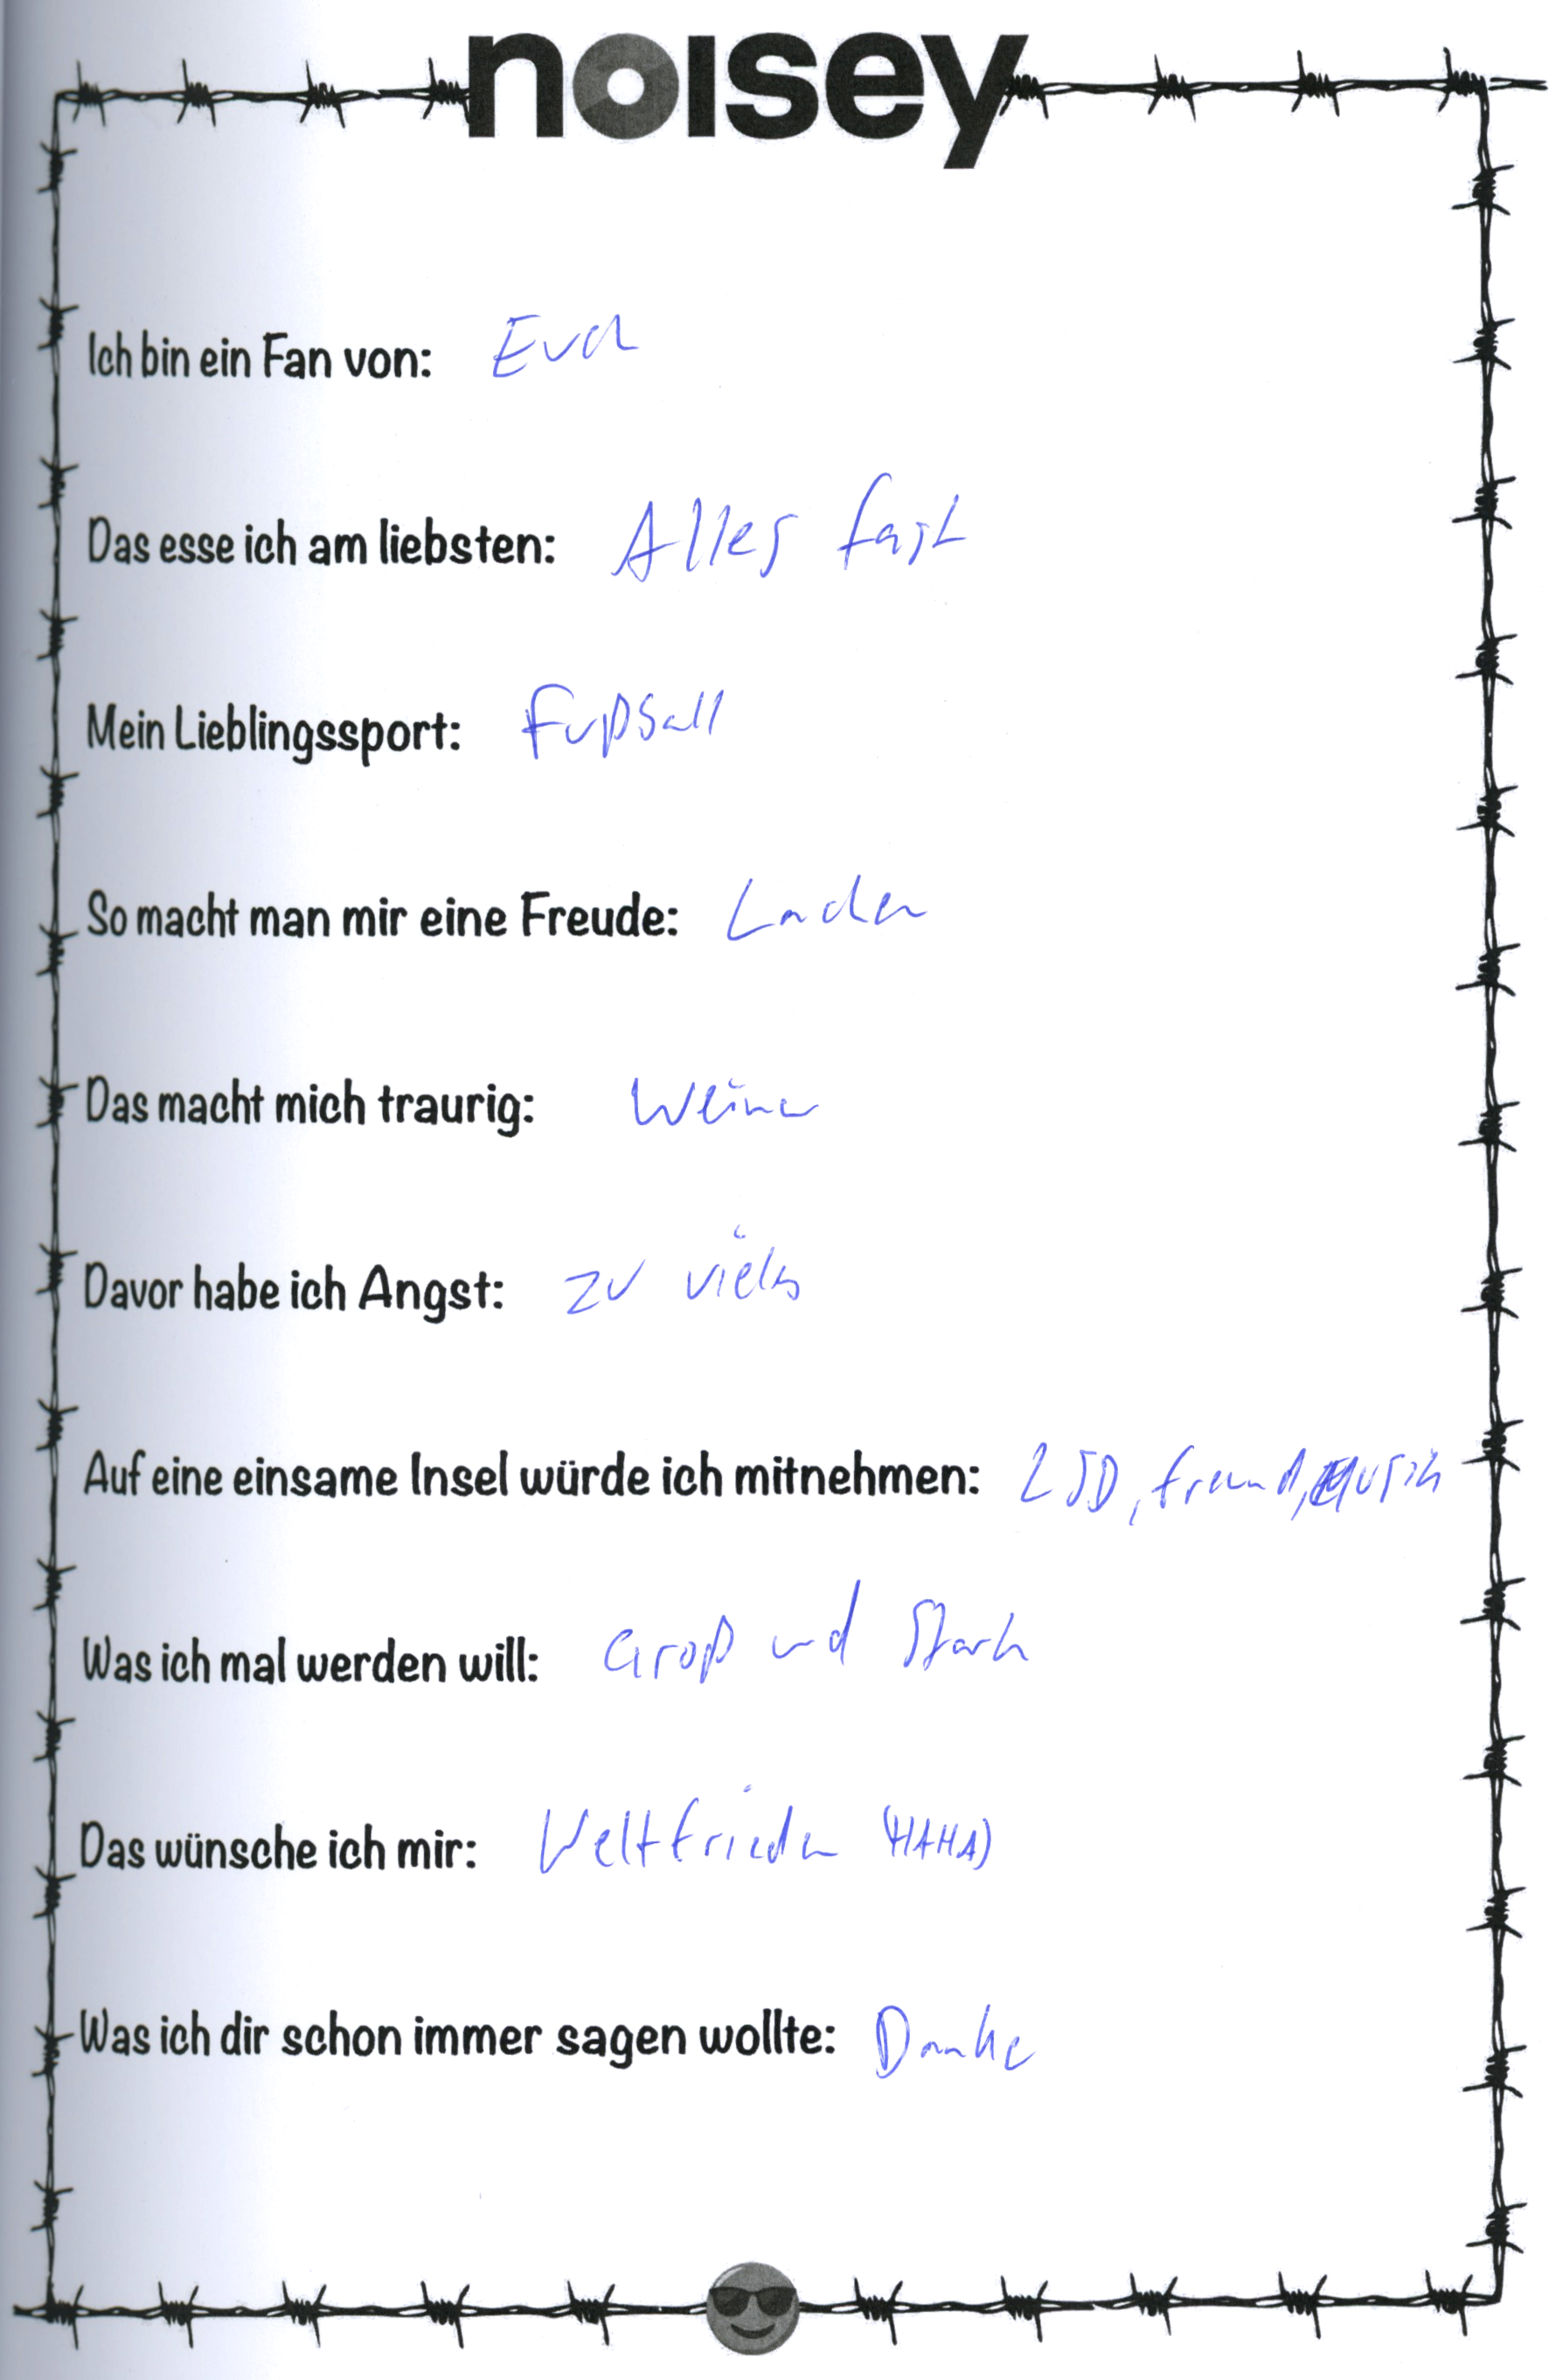 noisey
Ich bin ein Fan von: Eva
Das esse ich am liebsten: Alles fast
Mein Lieblingssport: Fußball
So macht man mir eine Freude: Lachen
Das macht mich traurig: Weinen
Davor habe ich Angst: zu vieles
Auf eine einsame Insel würde ich mitnehmen: LSD, freund, Musik
Was ich mal werden will: Groß und Stark
Das wünsche ich mir: Weltfrieden (HAHA)
Was ich dir schon immer sagen wollte: Danke